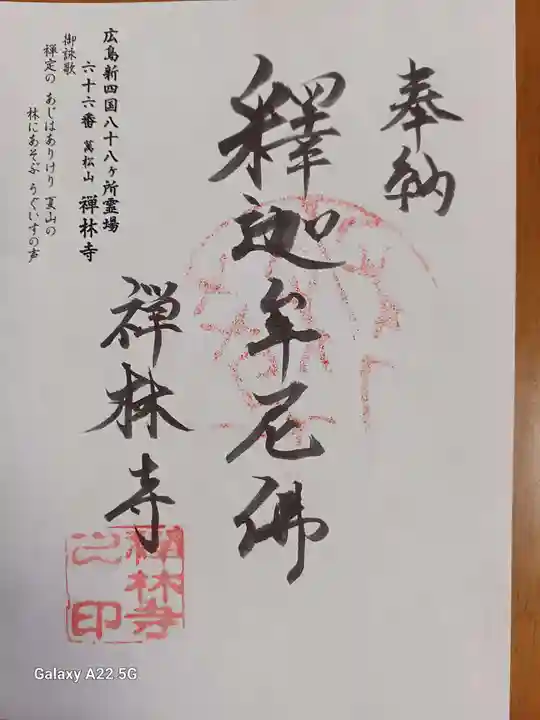 奉納
釋迦牟尼佛
禅林寺
禅林寺之印
広島新四国八十八ヶ所霊場
六十六番 萬松山 禅林寺
御詠歌
禅定の あじはありけり 夏山の
林にあそぶ うぐいすの声
Galaxy A22 5G